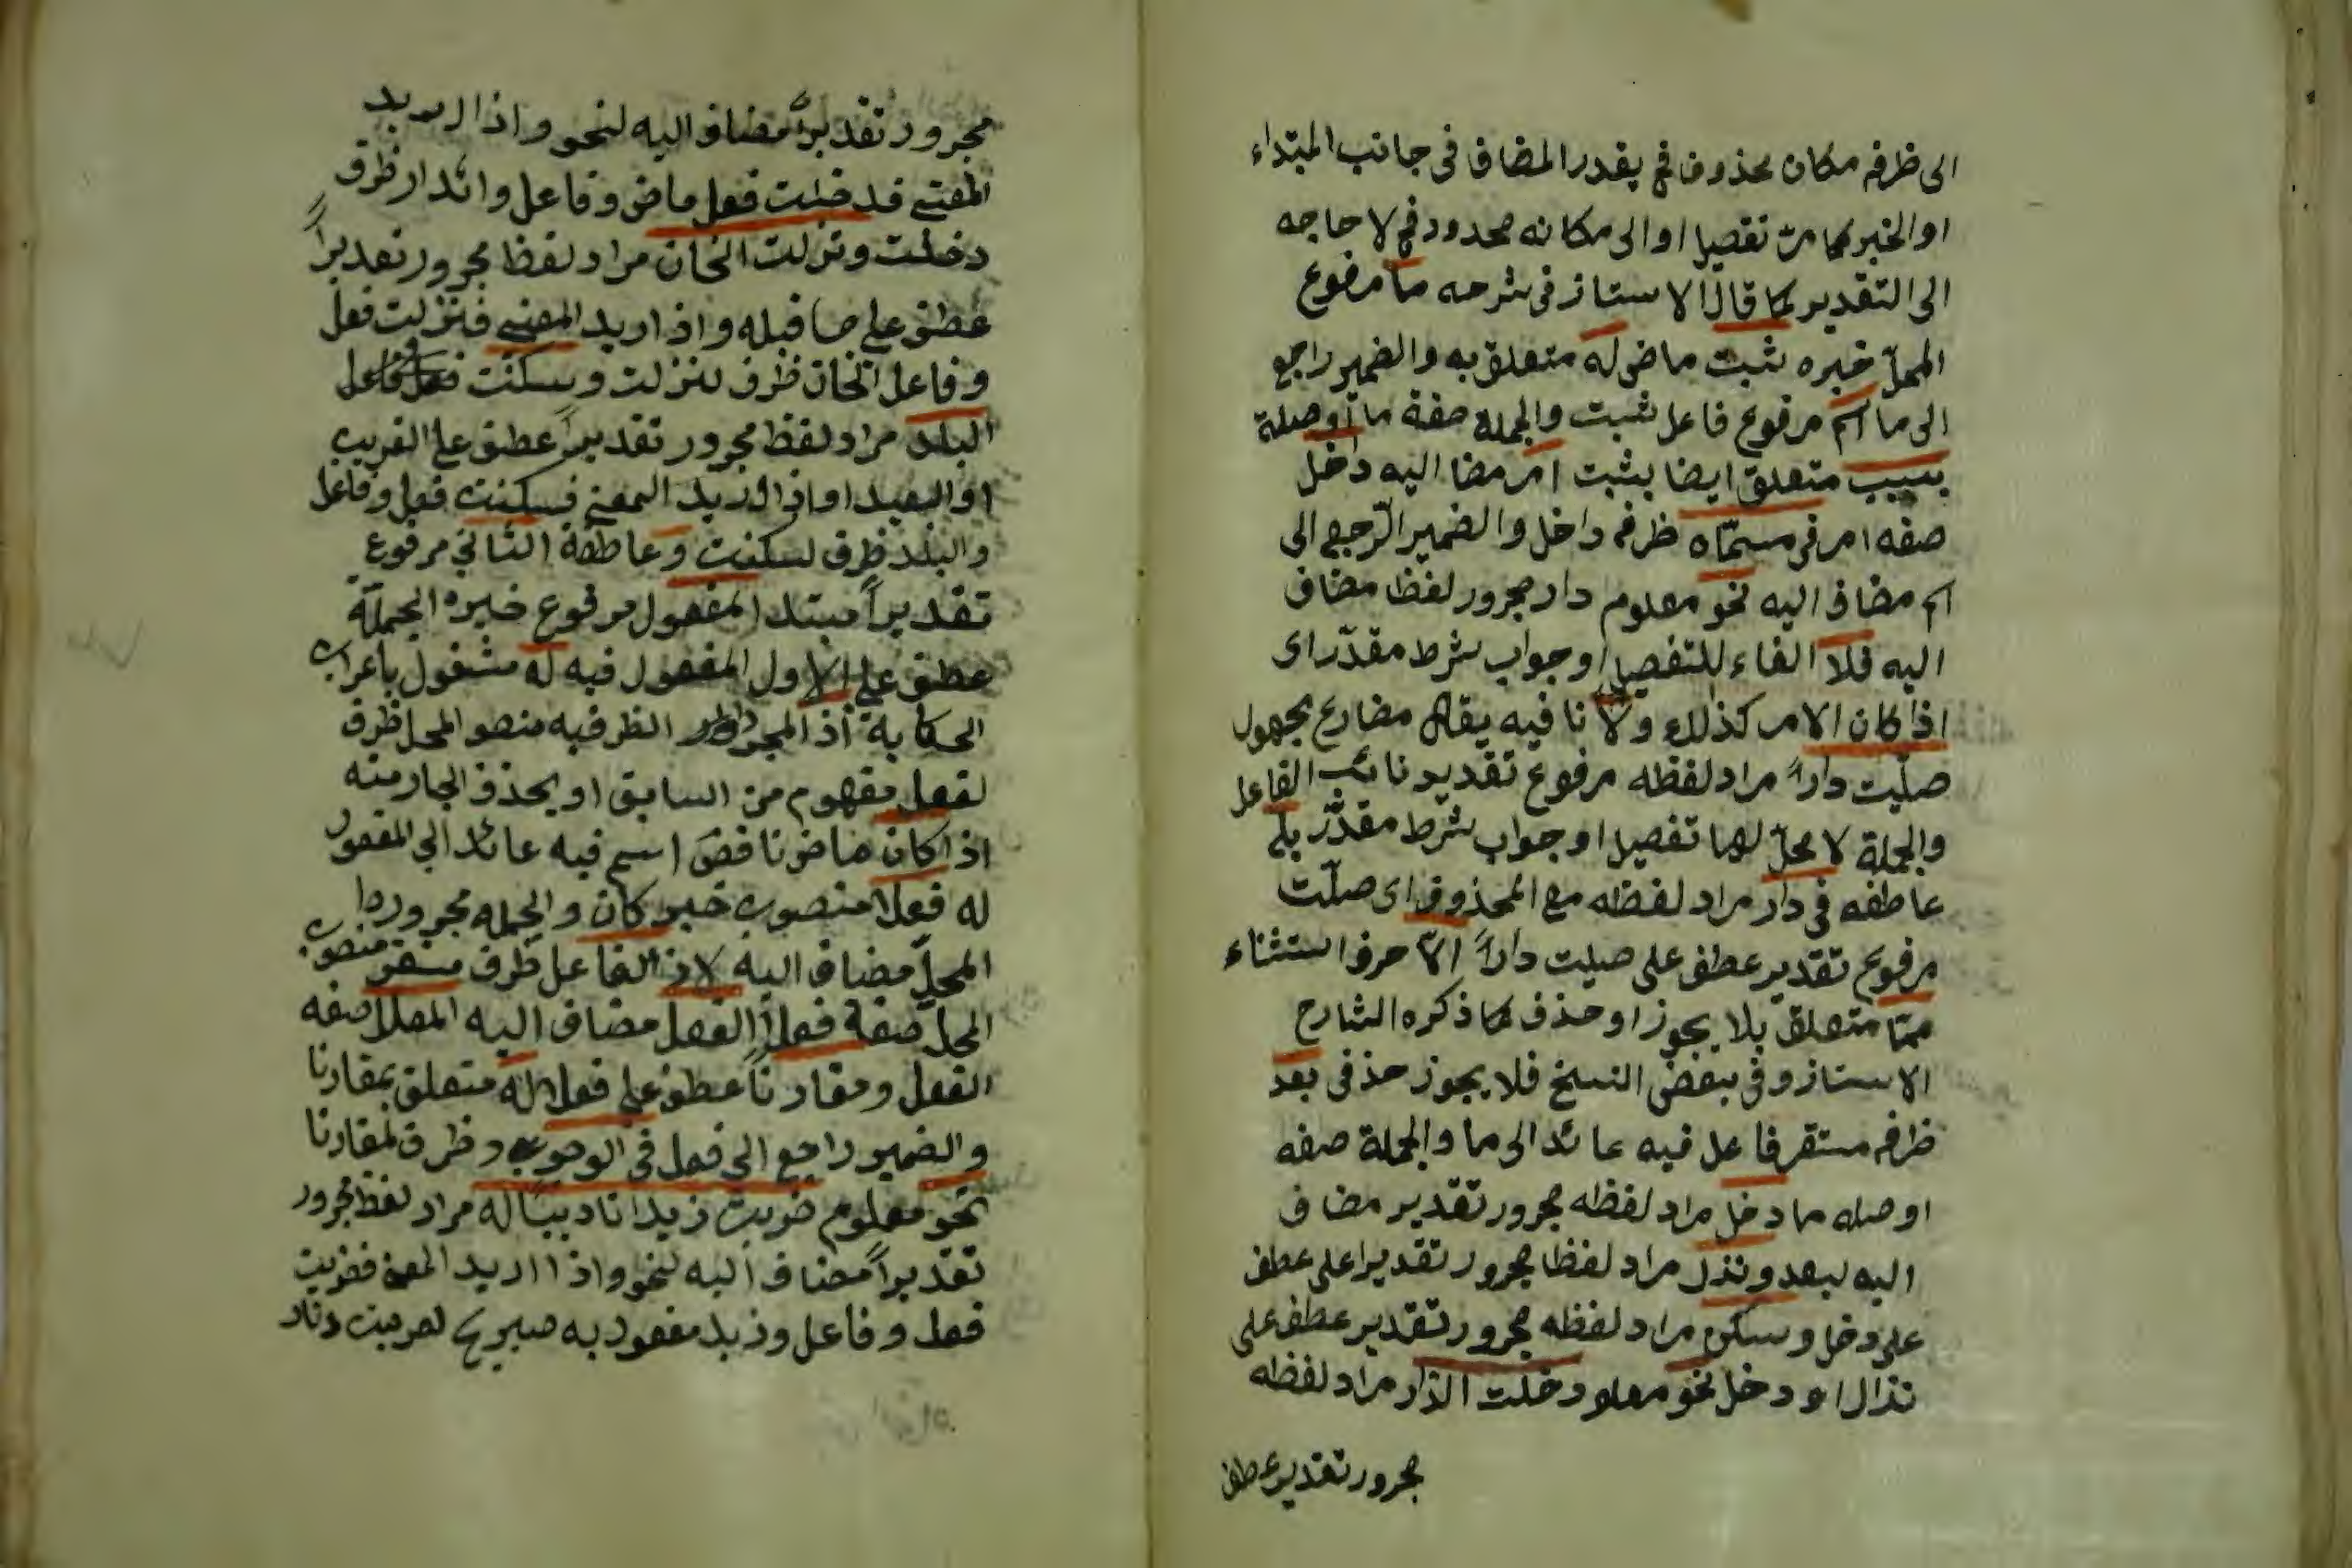 الى ظرفه مكان محذوف فح يقدر المضاف فى جانب المبتداء
او الخبر كما مرّ تفصيلا او الى مكانه محدود فح لا حاجه
الى التقدير كما قال الاستاز فى شرحه ما مرفوع
المحلّ خبره ثبت ماض له متعلق به والضمير راجع
الى ما اسم مرفوع فاعل ثبت والجملة صفة ما أو صلة
بسبب متعلق ايضا بثبت امر مضا اليه داخل
صفه امر فى مسمّاه ظرفه داخل والضمير الرّجع الى
اسم مضاف اليه نحو معلوم دار مجرور لفظا مضاف
اليه فلا الفاء للتفصيل او جواب شرط مقدّر اى
اذا كان الامر كذلك ولا نافيه يقال مضارع مجهول
صلّيت داراً مراد لفظه مرفوع تقدير نائب الفاعل
والجملة لا محلّ لها تفصيل او جواب شرط مقدّر بل
عاطفه فى دار مراد لفظه مع المحذوف اى صلّت
مرفوع تقدير عطف على صليت داراً الاّ حرف استثناء
ممّا متعلق بلا يجوز او حذف كما ذكره الشارح
الاستاز وفى بعض النسخ فلا يجوز حذفى بعد
ظرفه مستقر فاعل فيه عائد الى ما والجملة صفه
او صله ما دخل مراد لفظه مجرور تقدير مضاف
اليه لبعد ونذل مراد لفظا مجرور تقديرا على عطف
على دخل وسكن مراد لفظه مجرور تقدير عطف على
نذال او دخل نحو معلو دخلت الدار مراد لفظه
مجرور تقدير عطف
مجرور تقديراً مضاف اليه لنحو واذا اريد
المعنى فدخلت فعل ماض وفاعل والدار ظرف
دخلت ونزلت الخان مراد لفظا مجرور تقديراً
عطف على ما قبله واذ اريد المعنى فنزلت فعل
وفاعل الخان ظرف لنزلت وسكنت
البلد مراد لفظ مجرور تقديراً عطف على القريب
او البعيد او اذا اريد المعنى فسكنت فعل وفاعل
والبلد ظرف لسكنت وعاطفة الثانى مرفوع
تقديراً مبتدا المفعول مرفوع خبره الجملة
عطف على الاول المفعول فيه له مشغول باعراب
الحكاية اذ المجرد الظرفيه منصو المحل ظرف
لفعل مفهوم من السابق او يحذف الجار منه
اذا كان ماض ناقص اسم فيه عائد الى المفعول
له فعلا منصوب خبر كان والجمله مجرور
المحلّ مضاف اليه لاذ الفاعل ظرف مستقر منصوب
المحلّ صفة فعلاً الفعل مضاف اليه المعلل صفه
الفعل ومقارناً عطف على فعلا له متعلق بمقارنا
والضمير راجع الى فعل فى الوجود ظرف لمقارنا
نحو معلوم ضربت زيدا تاديبا له مراد لفظ مجرور
تقديراً مضاف اليه لنحو واذا اريد المعنى فضربت
فعل وفاعل وزيد مفعول به صريح لضربت وتاد